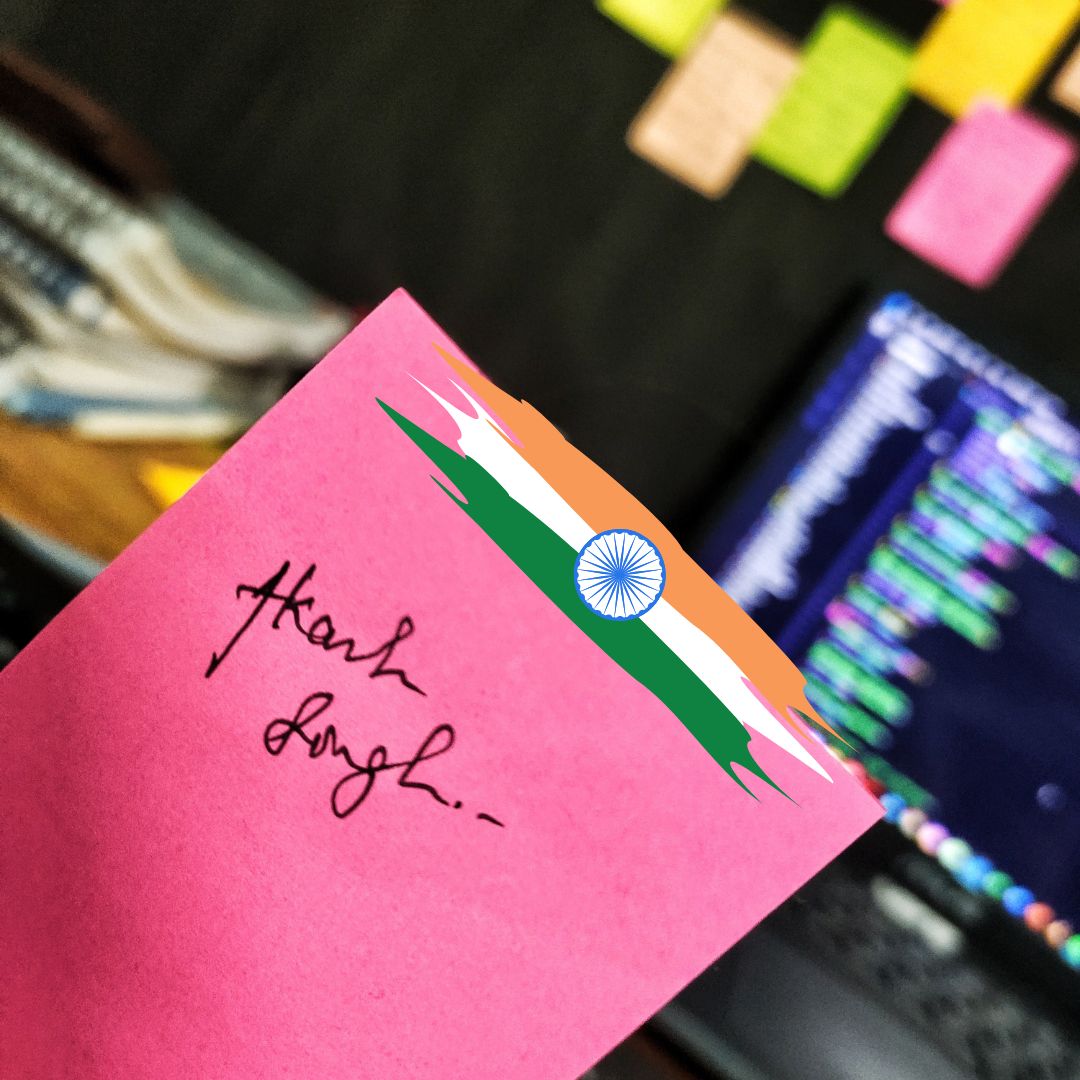 Akash
Singh..-